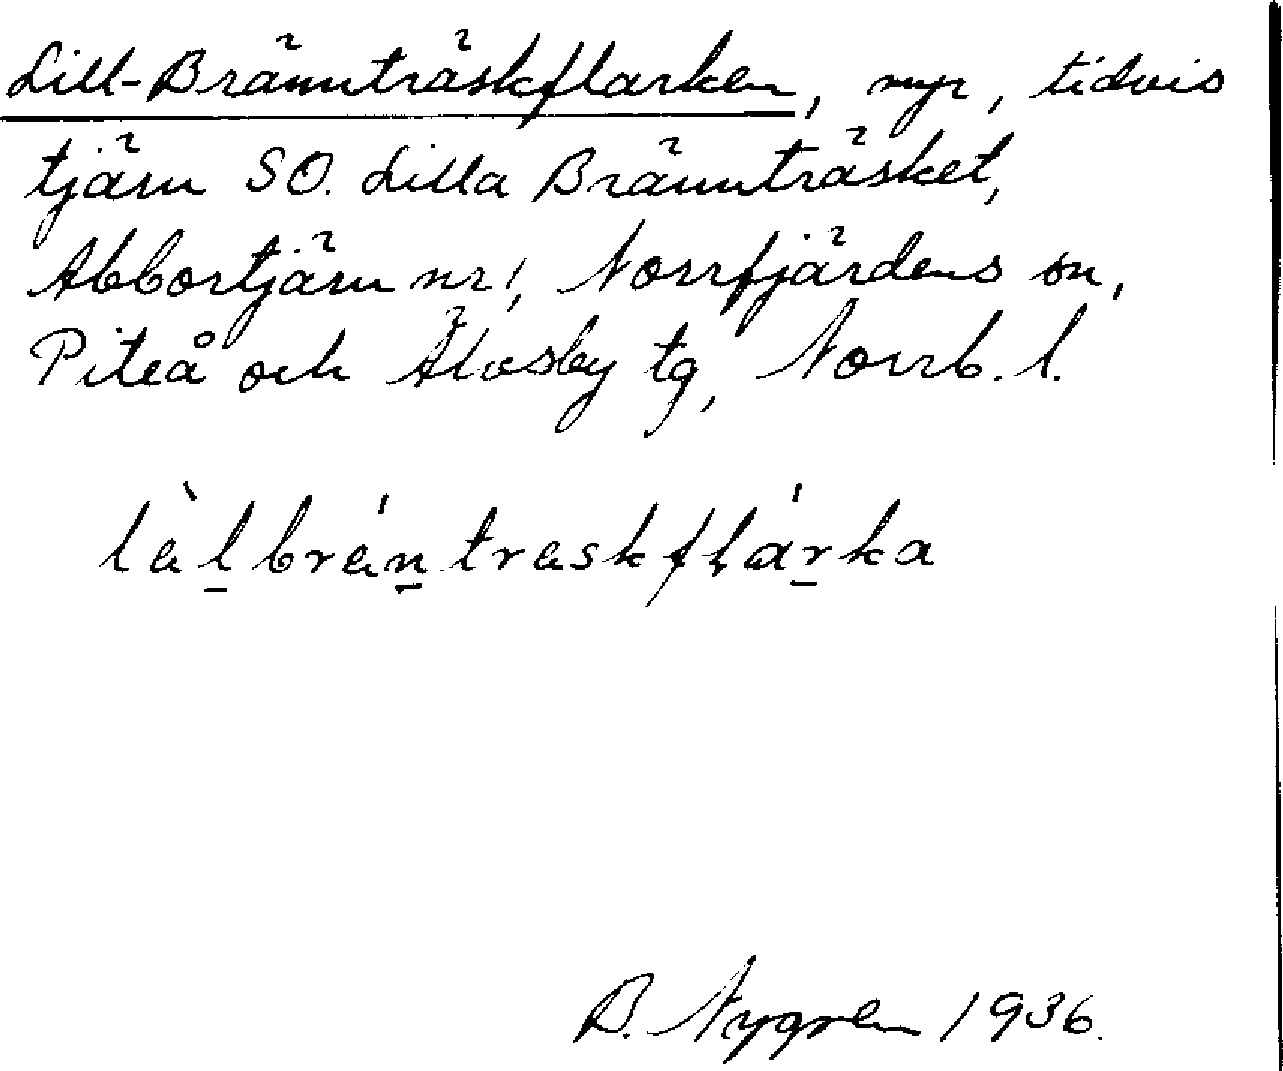 Lill-Brännträskflarken, myr, tidvis
tjärn SO. Lilla Brännträsket,
Abbortjärn nr 1, Norrfjärdens sn,
Piteå och Älvsby tg, Norrb. l.
lèl̲brén̲traskflár̲ka
B. Nygren 1936.